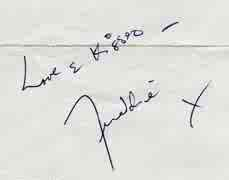 Love & Kisses –
Freddie X